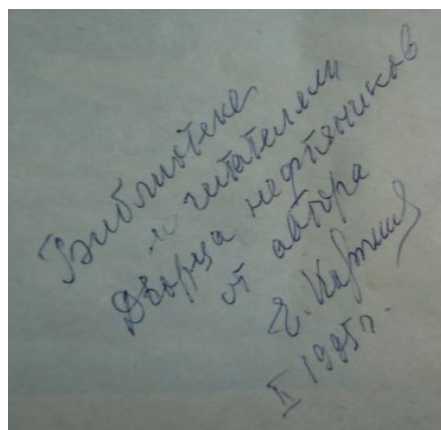 Библиотеке
и читателям
Дворца нефтяников
от автора
II 1985г.